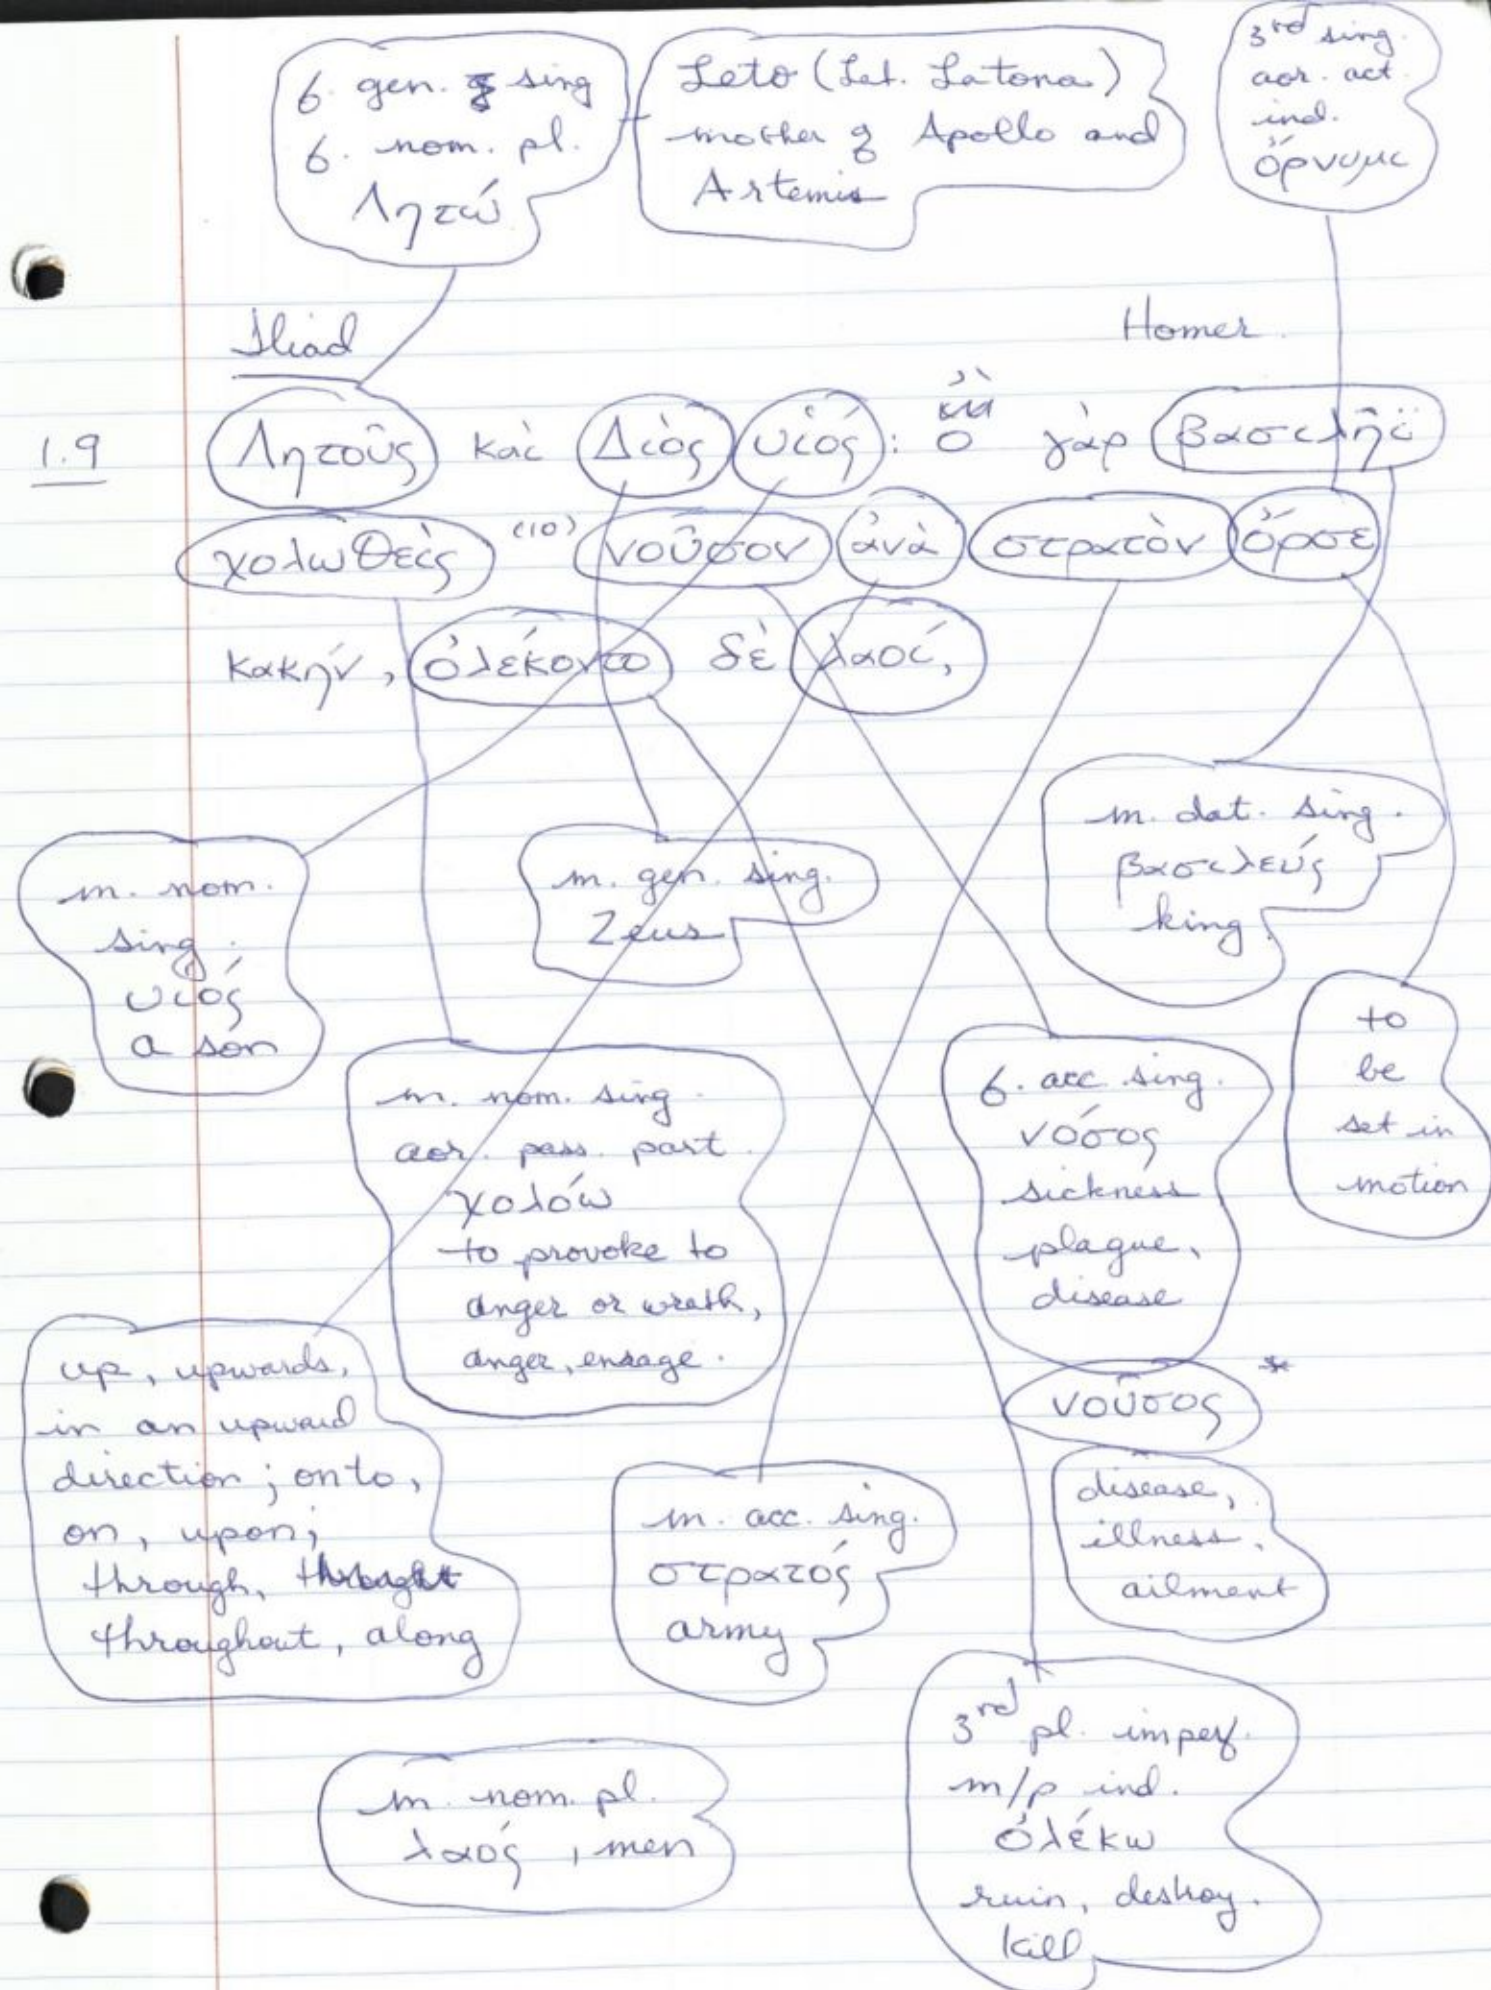 f. gen. sing
f. nom. pl.
Λητώ
Leto (Lat. Latona)
mother of Apollo and
Artemis
3rd sing.
aor. act.
ind.
ὄρνυμι
Iliad
Homer.
1.9
Λητοῦς καὶ Διὸς υἱός: ὃ γὰρ βασιλῆϊ
χολωθεὶς (10) νοῦσον ἀνὰ στρατὸν ὄρσε
κακήν, ὀλέκοντο δὲ λαοί,
m. nom.
sing.
υἱός
a son
m. gen. sing.
Zeus
m. dat. sing.
βασιλεύς
king
m. nom. sing.
aor. pass. part.
χολόω
to provoke to
anger or wrath,
anger, enrage.
f. acc. sing.
νόσος
sickness
plague,
disease
to
be
set in
motion
νοῦσος *
disease,
illness,
ailment
up, upwards,
in an upward
direction; onto,
on, upon;
through,
throughout, along
m. acc. sing.
στρατός
army
m. nom. pl.
λαός, men
3rd pl. imperf.
m/p ind.
ὀλέκω
ruin, destroy.
kill